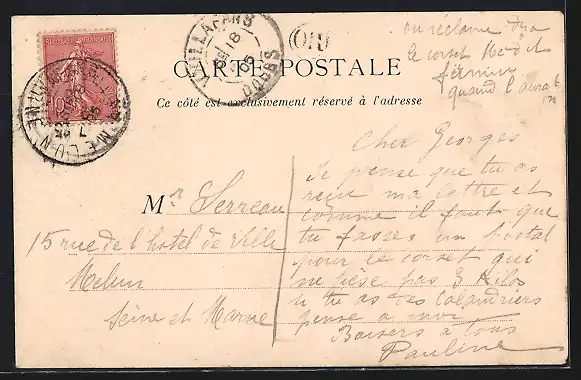 on réclame
le corset
quand l'aurat
on
VUILLAFANS
18
05
DOUBS
OR
REPUBLIQUE FRANÇAISE
10
MELUN
CARTE POSTALE
Ce côté est exclusivement réservé à l'adresse
Cher Georges
Je pense que tu as
reçu ma lettre et
comme il faut que
tu fasses un postal
pour le corset qui
ne pèse pas 3 Kilos
si tu as des Calandriers
pense a moi
Baisers à tous
Pauline
Mr Serreau
15 rue de l'hotel de Ville
Melun
Seine et Marne